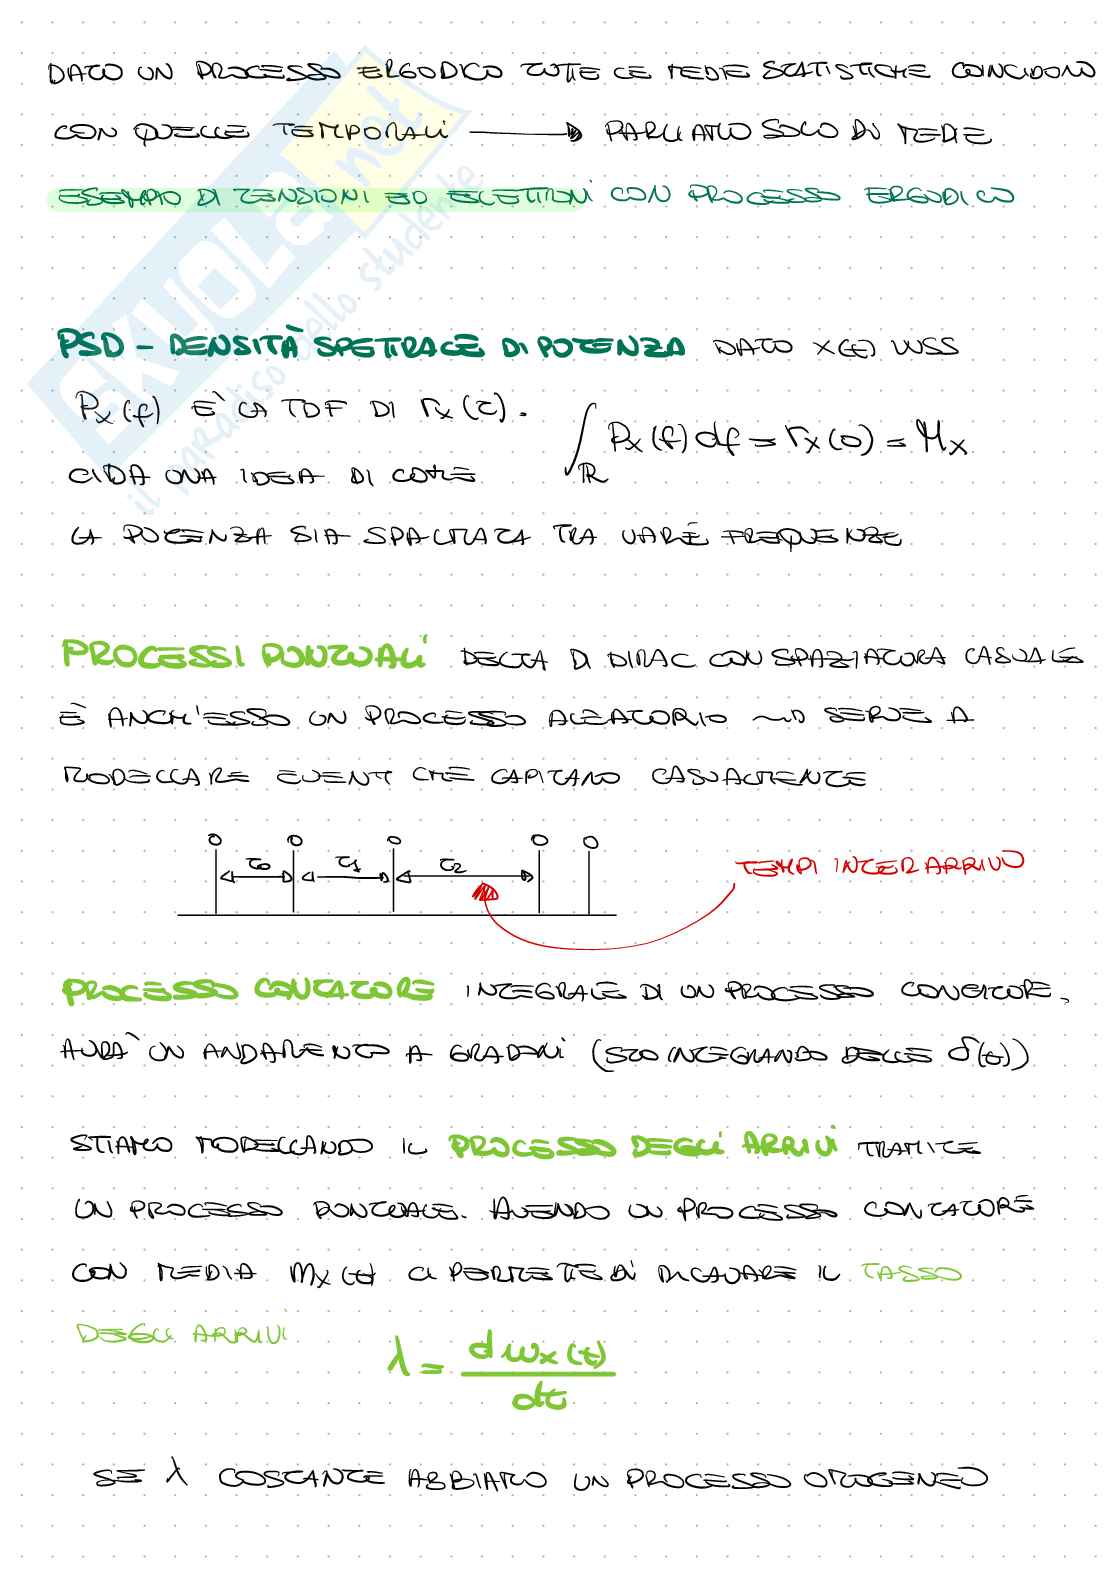 DATO UN PROCESSO ERGODICO TUTTE LE MEDIE STATISTICHE COINCIDONO
CON QUELLE TEMPORALI → PARLIAMO SOLO DI MEDIE
ESEMPIO DI TENSIONI ED ELETTRONI CON PROCESSO ERGODICO
SKUOLA.net
il paradiso dello studente
PSD - DENSITÀ SPETTRALE DI POTENZA DATO X(t) WSS
Px(f) È LA TDF DI rx(τ).
∫ℝ Px(f) df = rx(0) = Mx
CI DA UNA IDEA DI COME
LA POTENZA SIA SPALMATA TRA VARIE FREQUENZE
PROCESSI PUNTUALI DELTA DI DIRAC CON SPAZIATURA CASUALE
È ANCH'ESSO UN PROCESSO ALEATORIO → SERVE A
MODELLARE EVENTI CHE CAPITANO CASUALMENTE
τ0 τ1 τ2
TEMPI INTERARRIVO
PROCESSO CONTATORE INTEGRALE DI UN PROCESSO CONTATORE,
AVRÀ UN ANDAMENTO A GRADONI (STO INTEGRANDO DELLE δ(t))
STIAMO MODELLANDO IL PROCESSO DEGLI ARRIVI TRAMITE
UN PROCESSO PUNTUALE. AVENDO UN PROCESSO CONTATORE
CON MEDIA mx(t) CI PERMETTE DI RICAVARE IL TASSO
DEGLI ARRIVI
λ = d mx(t) / dt
SE λ COSTANTE ABBIAMO UN PROCESSO OMOGENEO